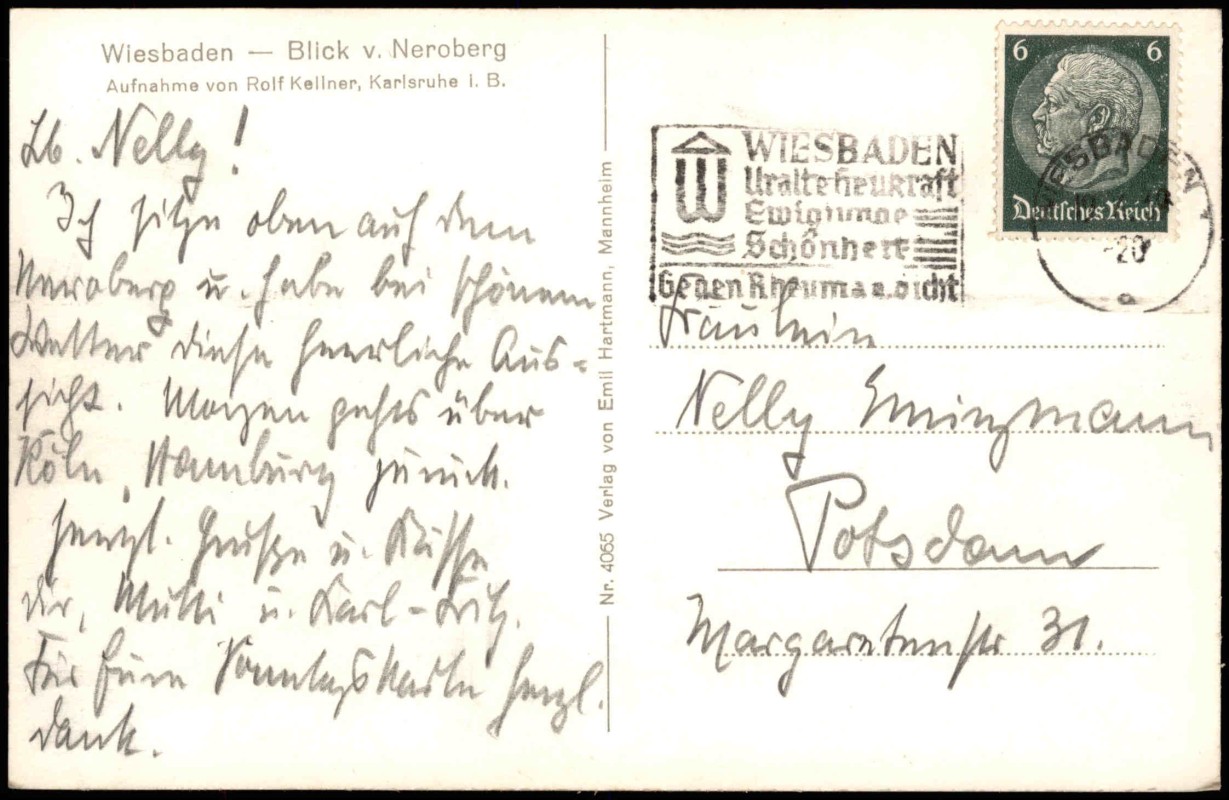 Wiesbaden — Blick v. Neroberg
Aufnahme von Rolf Kellner, Karlsruhe i. B.
Lb. Nelly!
Ich sitze oben auf dem
Neroberg u. habe bei schönem
Wetter diese herrliche Aus-
sicht. Morgen gehts über
Köln, Hamburg zurück.
Herzl. Grüsse u. Küsse
dir, Mutti u. Karl-Fritz.
Für Eure Sonntagskarte herzl.
Dank.
Nr. 4065 Verlag von Emil Hartmann, Mannheim
6 6
Deutsches Reich
WIESBADEN
Uralte Heilkraft
Ewigjunge
Schönheit
Gegen Rheuma u. Gicht
WIESBADEN 1
-20
a
Fräulein
Nelly
Potsdam
Margaretenstr 31.